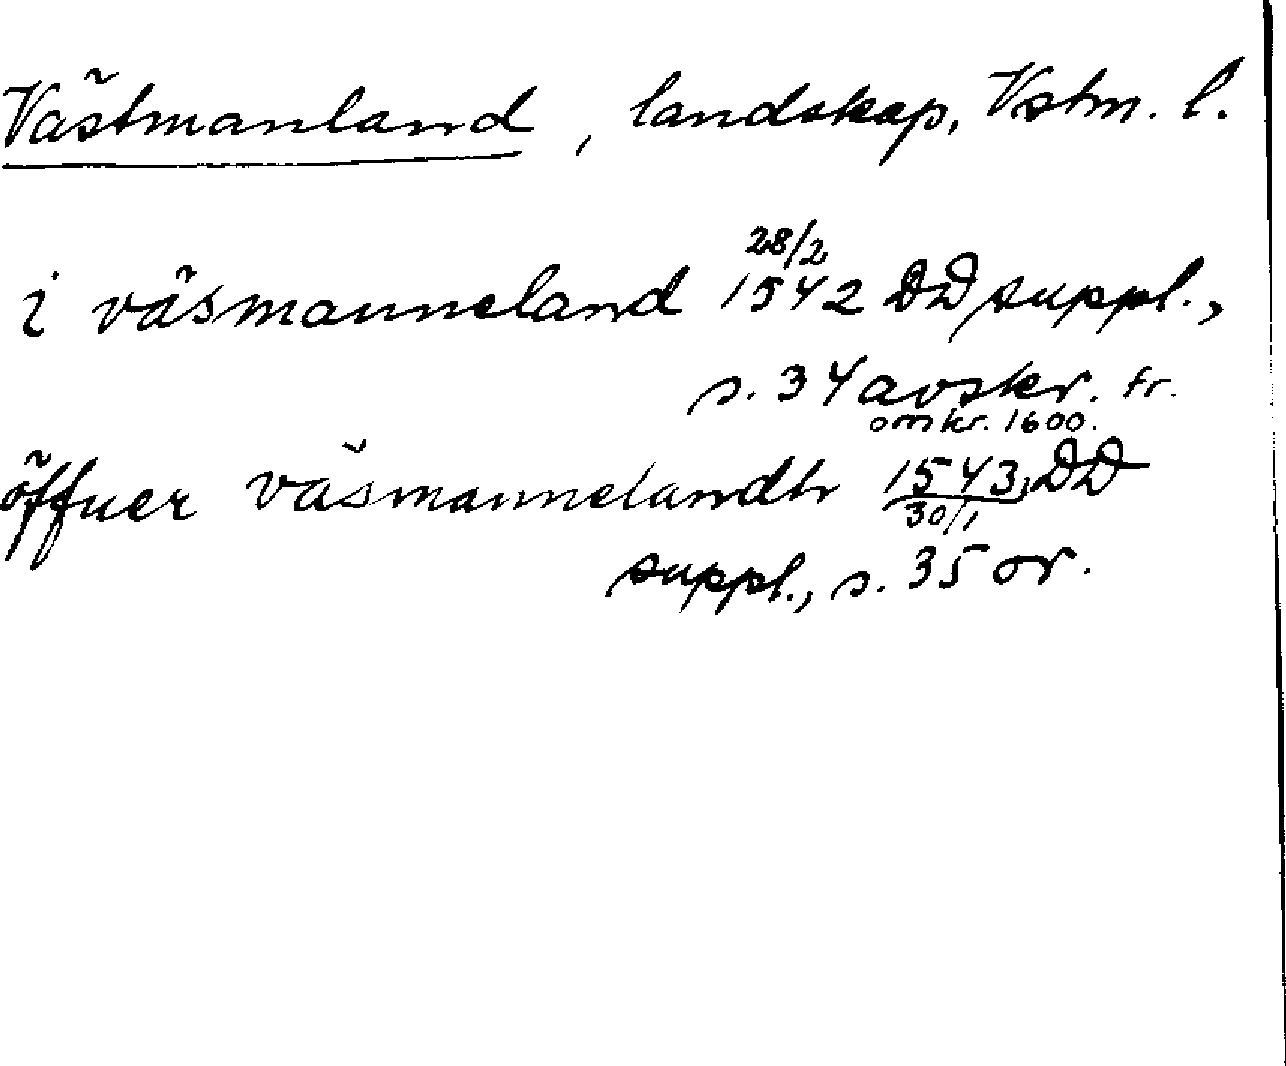 Västmanland, landskap, Vstm. l.
i väsmanneland 28/2 1542 DD suppl.,
s. 34 avskr. fr.
omkr. 1600.
öffuer väsmannelandh 1543, DD
30/1
suppl., s. 35 or.